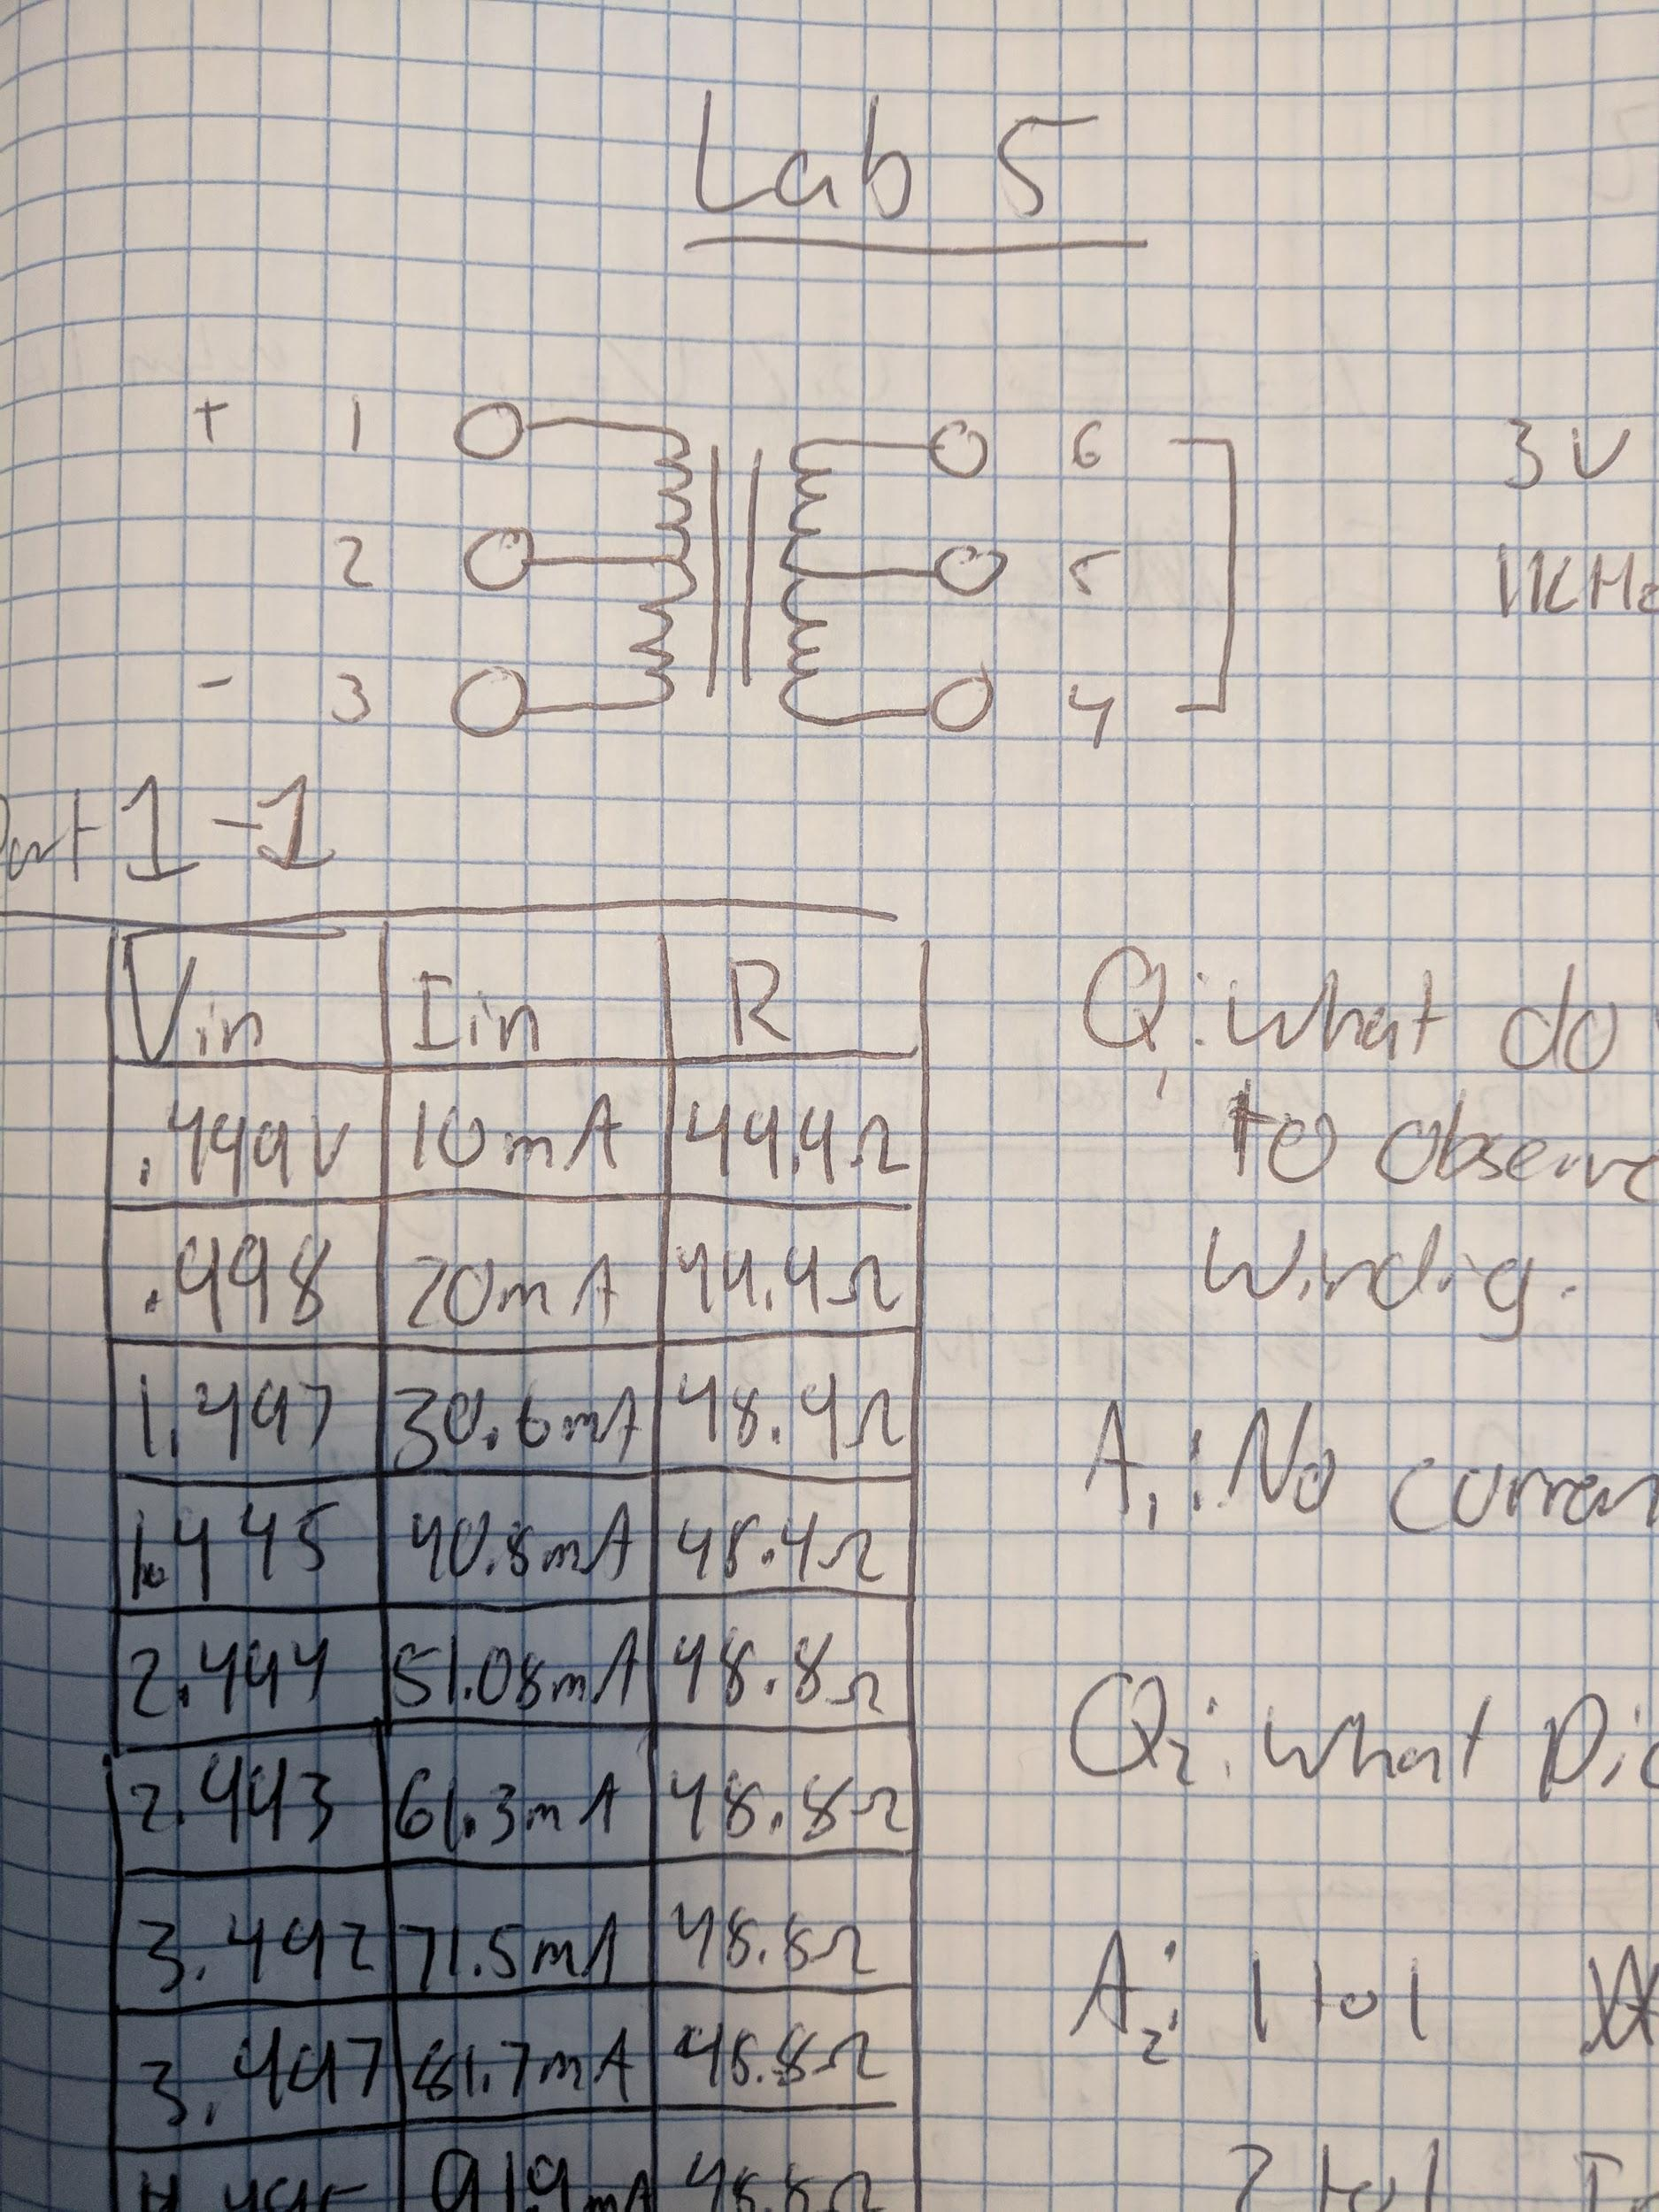 Lab 5
+ 1 6 3V
2 5 1KHz
- 3 4
Part 1-1
Vin Iin R
.499V 10mA 49.9Ω
.998 20mA 49.9Ω
1.497 30.6mA 48.9Ω
1.995 40.8mA 48.9Ω
2.494 51.08mA 48.8Ω
2.993 61.3mA 48.8Ω
3.492 71.5mA 48.8Ω
3.997 81.7mA 48.8Ω
91.9mA 48.8Ω
Q1: What do
to observe
Windig.
A1: No curren
Q2: What Di
A2: 1 to 1
2 to 1